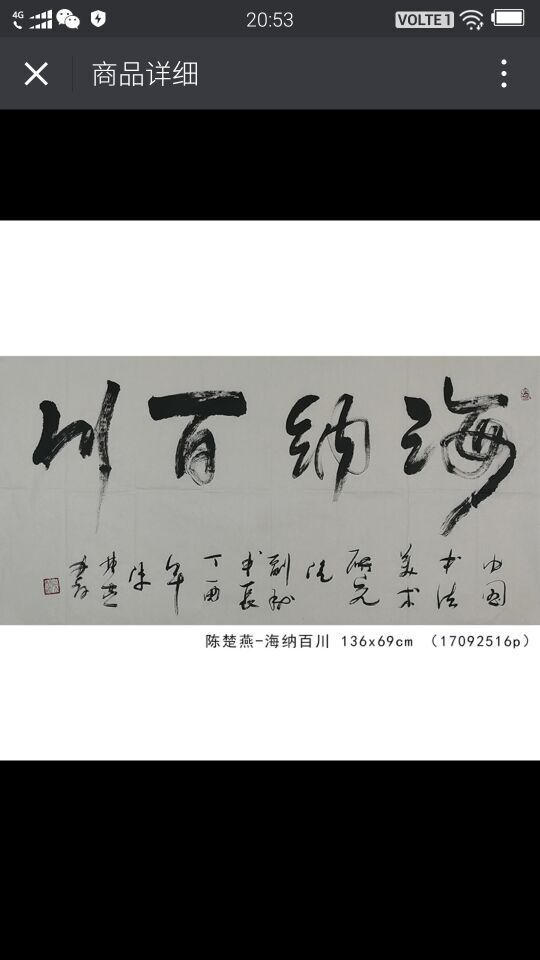 4G 20:53 VOLTE 1
商品详细
海纳百川
中国
书法
美术
研究
院
副秘
书长
丁酉
年
陈
楚
陈楚燕-海纳百川 136x69cm （17092516p）